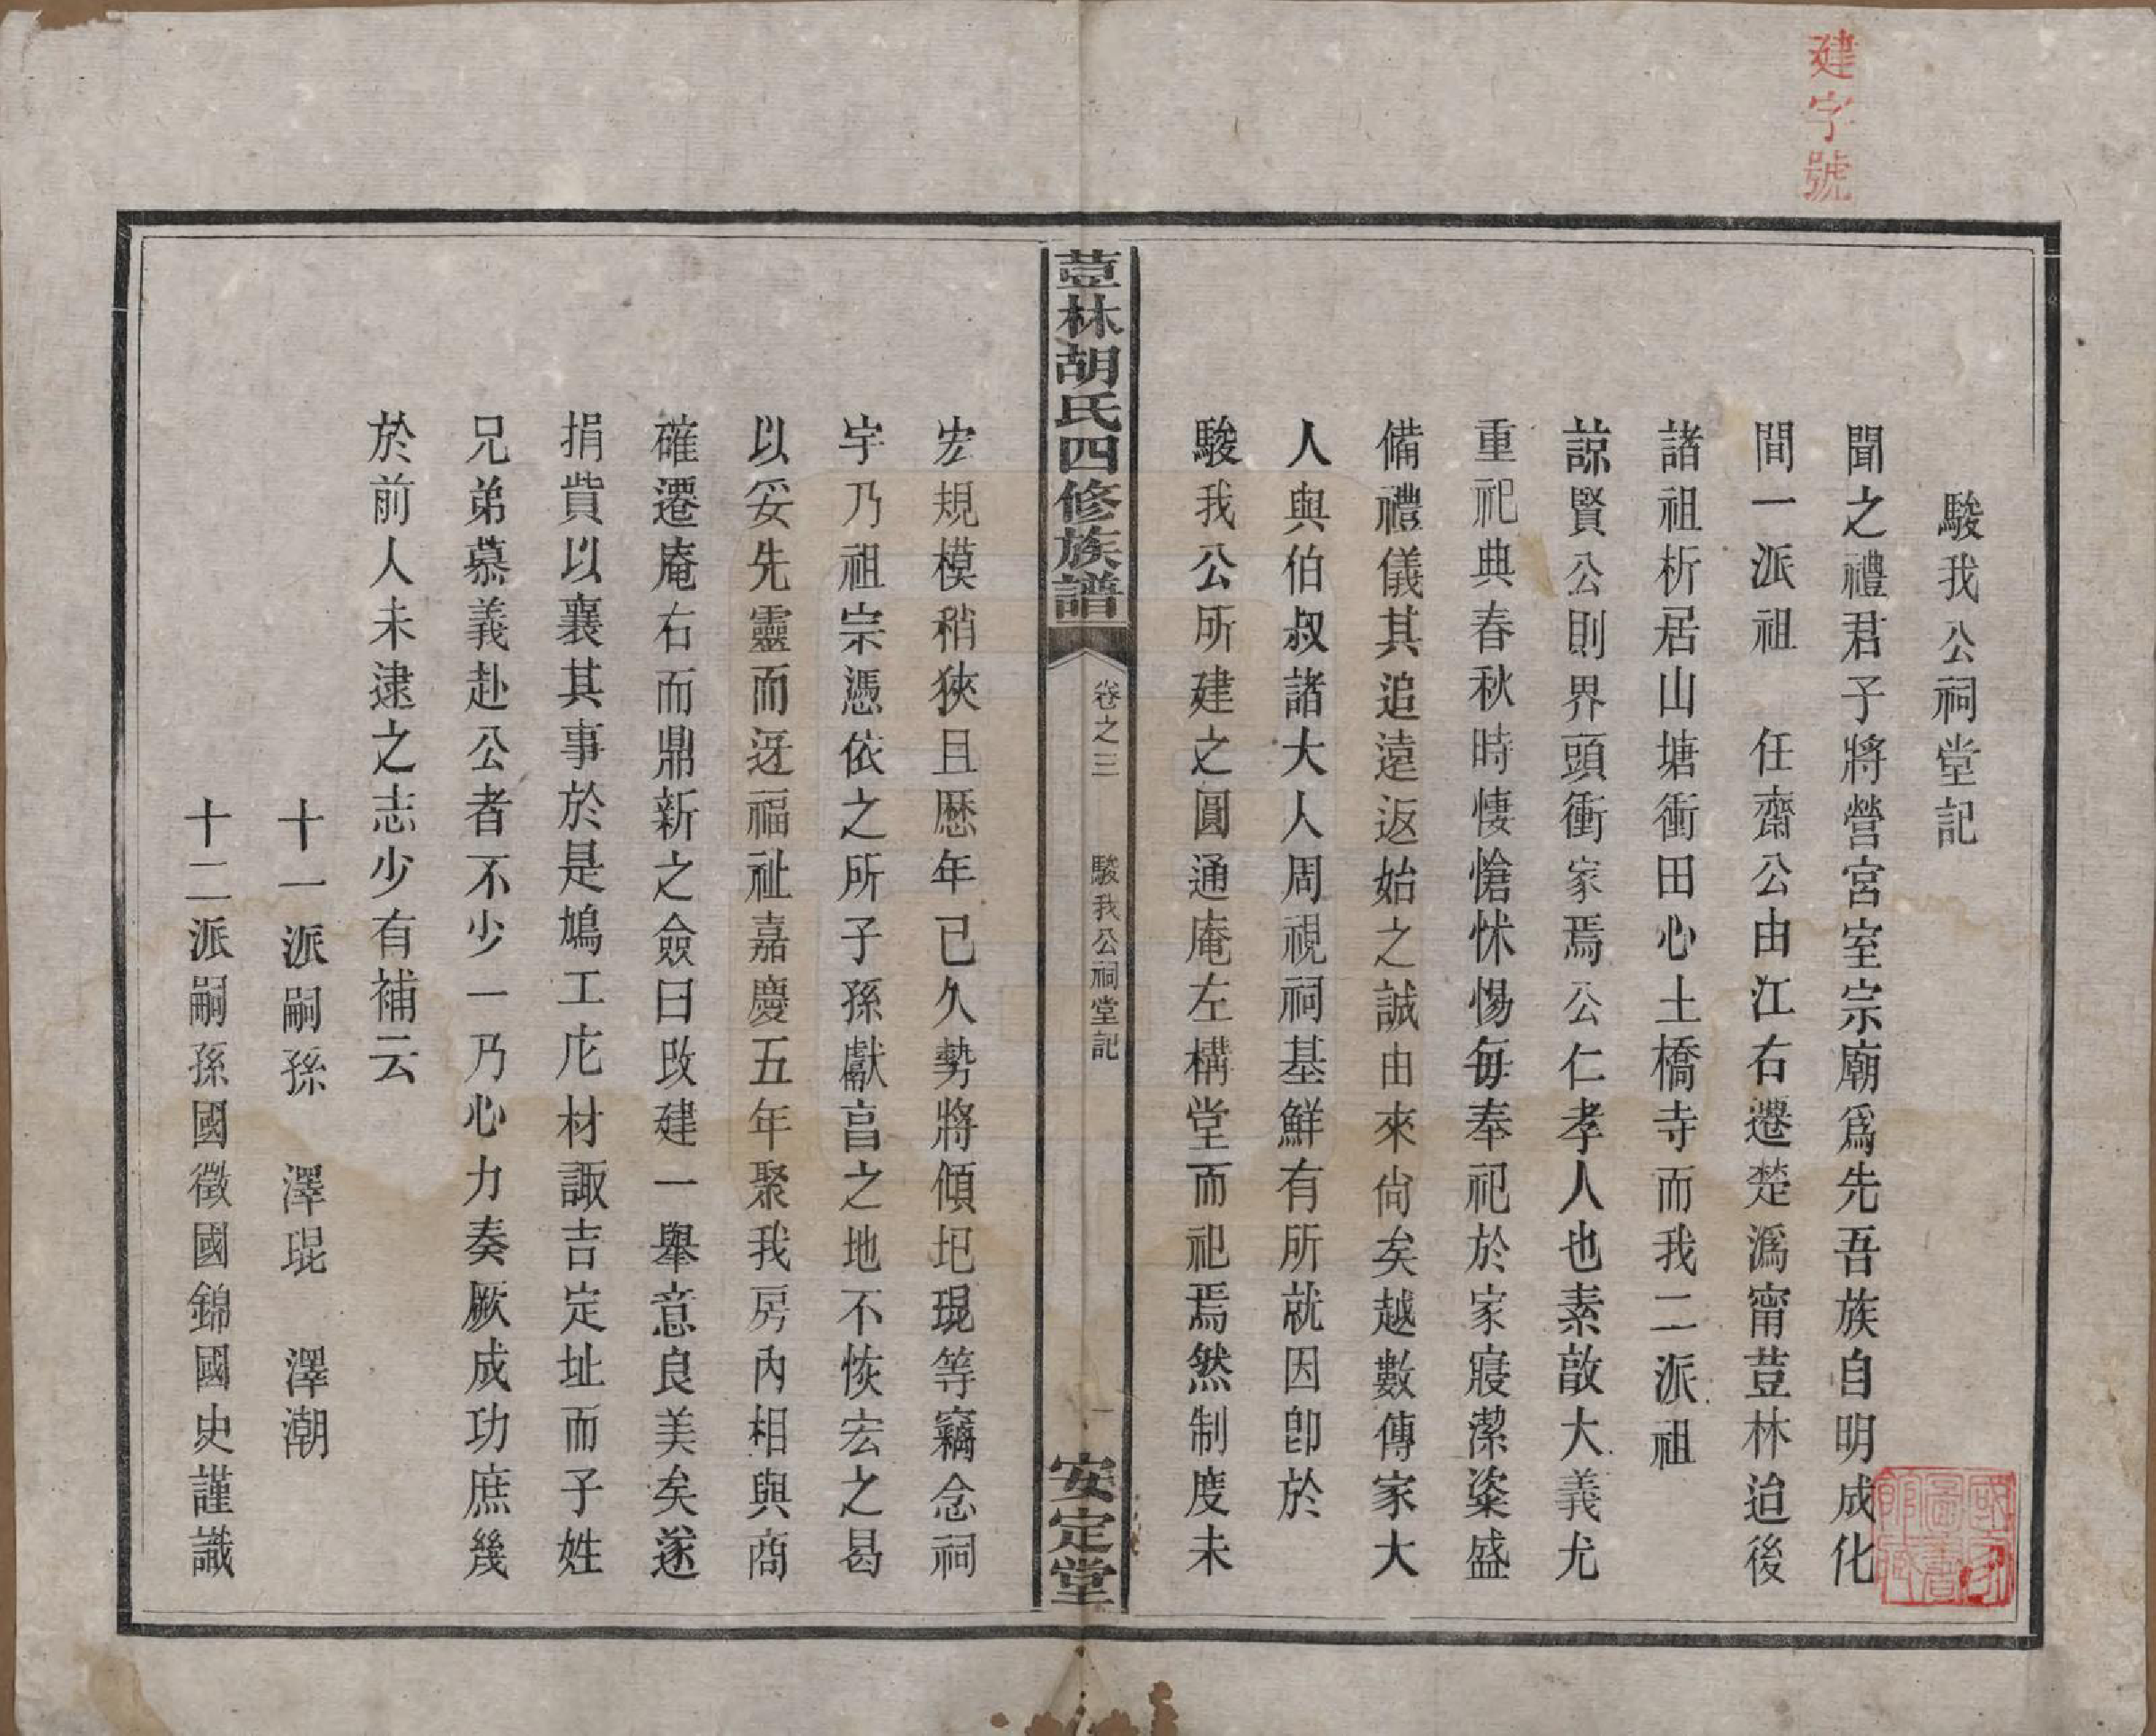 建字號
駿我公祠堂記
聞之禮君子將營宮室宗廟爲先吾族自明成化
間一派祖　任齋公由江右遷楚潙甯荳林迨後
諸祖析居山塘衝田心土橋寺而我二派祖
諒賢公則界頭衝家焉公仁孝人也素敦大義尤
重祀典春秋時悽愴怵惕每奉祀於家寢潔粢盛
備禮儀其追遠返始之誠由來尙矣越數傳家大
人與伯叔諸大人周視祠基鮮有所就因卽於
駿我公所建之圓通庵左構堂而祀焉然制度未
荳林胡氏四修族譜
卷之三
駿我公祠堂記
一
安定堂
宏規模稍狹且歷年已久勢將傾圯琨等竊念祠
宇乃祖宗憑依之所子孫獻亯之地不恢宏之曷
以妥先靈而迓福祉嘉慶五年聚我房內相與商
確遷庵右而鼎新之僉曰改建一舉意良美矣遂
捐貲以襄其事於是鳩工庀材諏吉定址而子姓
兄弟慕義赴公者不少一乃心力奏厥成功庶幾
於前人未逮之志少有補云
十一派嗣孫　澤琨　澤潮
十二派嗣孫國徵國錦國史謹識
國家圖書館藏